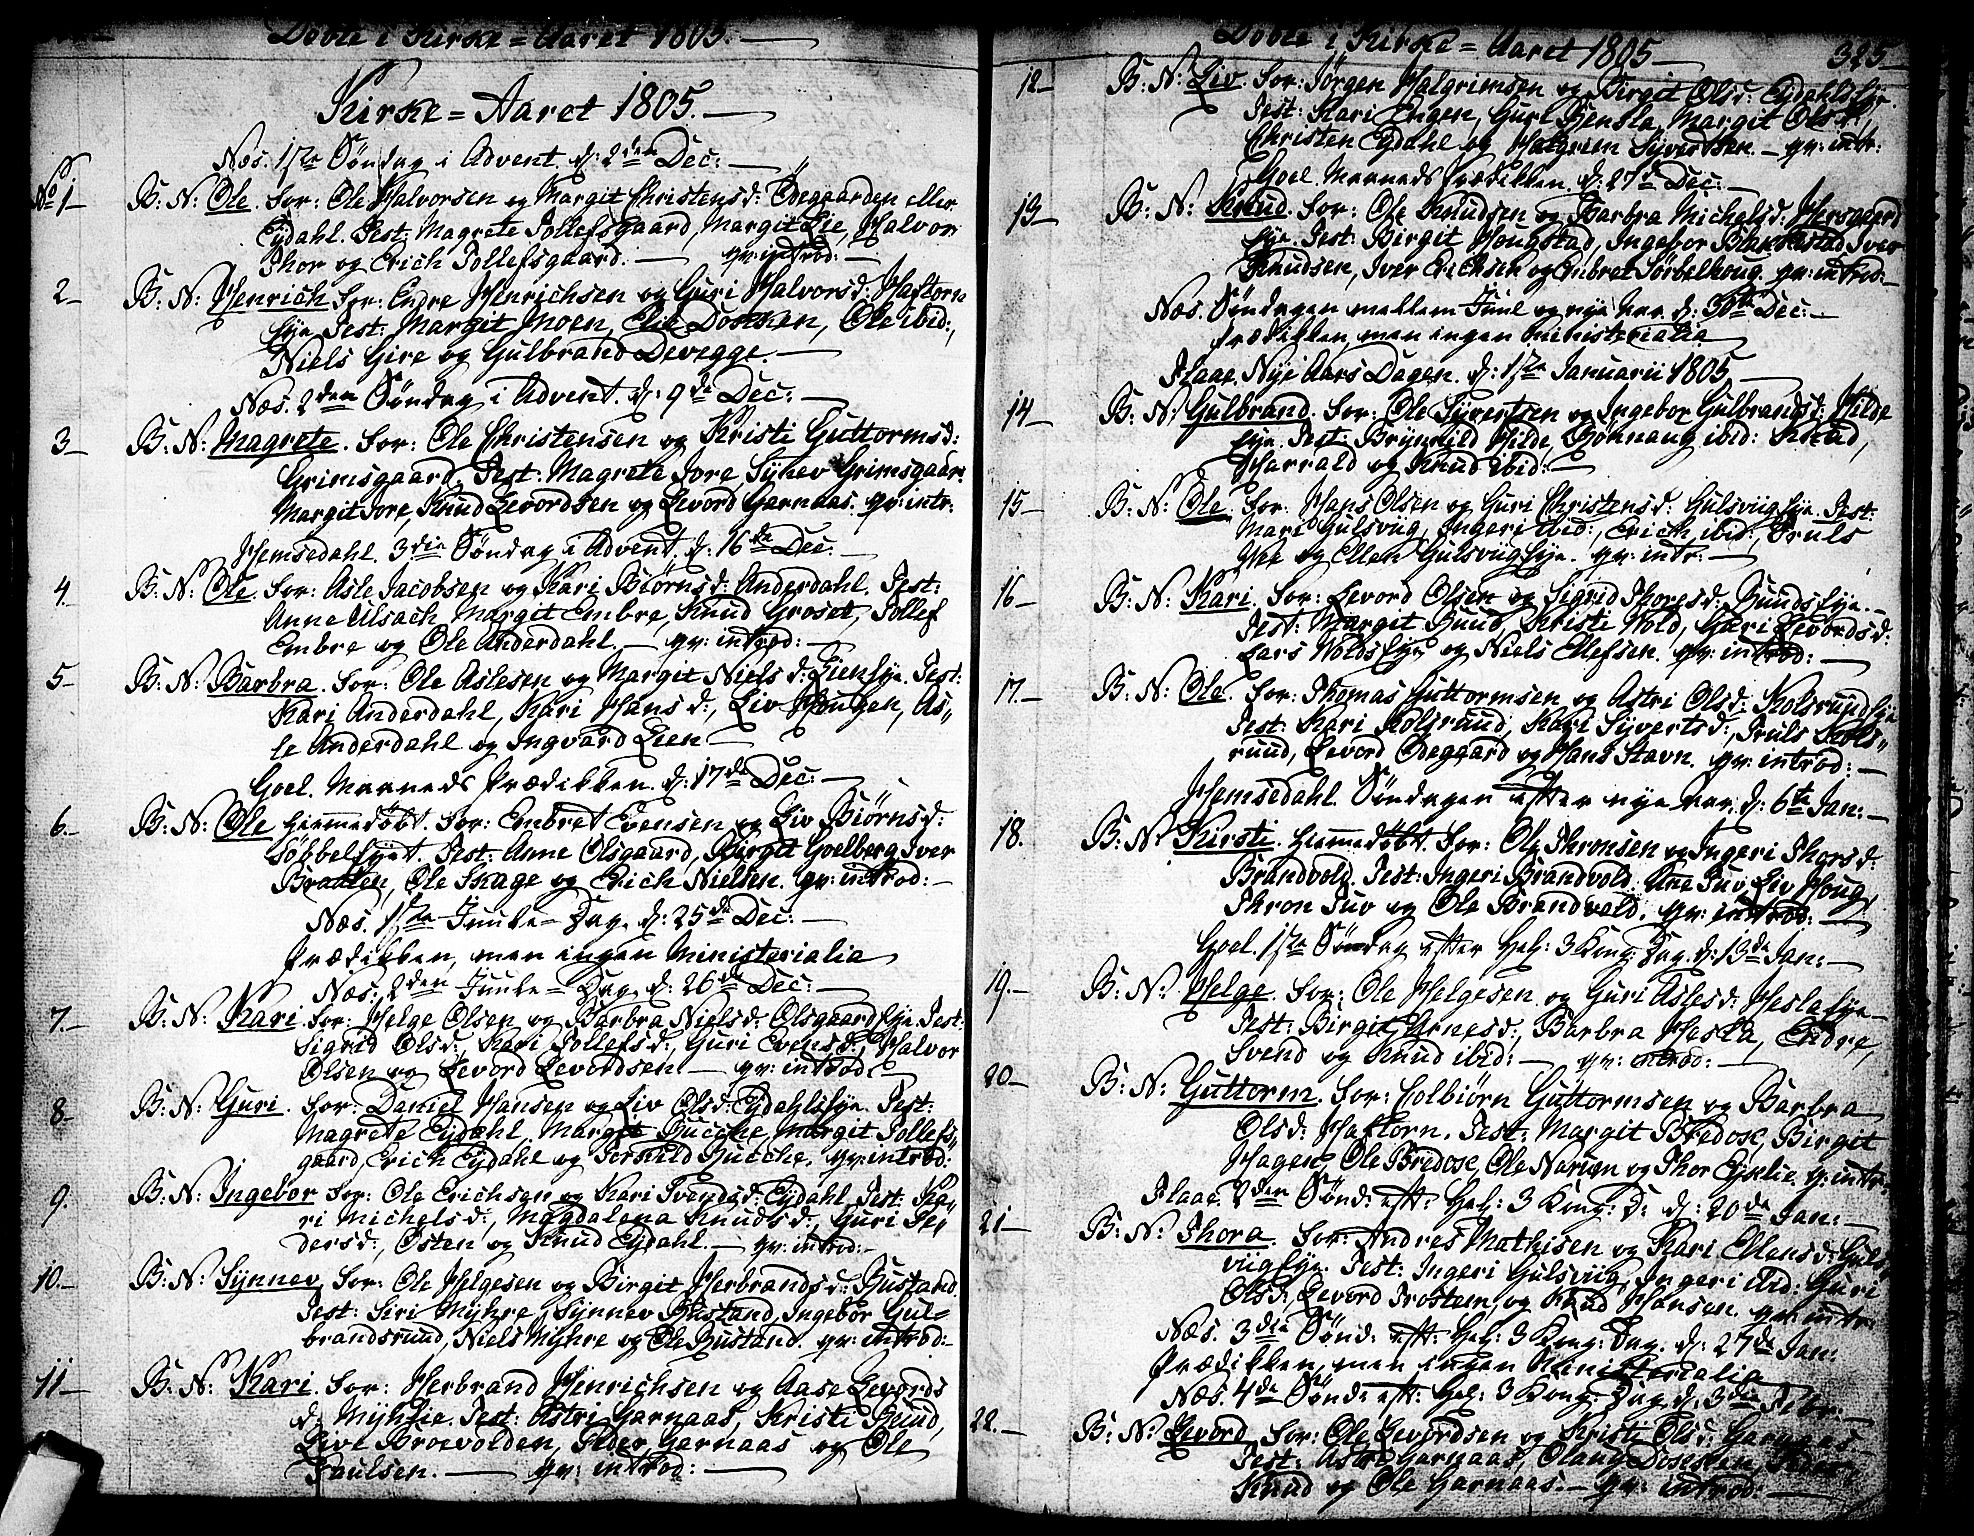 Døbte i Kirke = Aaret 1805.
Kirke = Aaret 1805.
Næs. 1ste Søndag i Advent. d: 2den Dec:
No 1 B: N: Ole. For: Ole Halvorsen og Margit Christensd: Ødegaarden eller
Eÿdahl. Test: Magrete Tollefsgaard, Margit Lie, Halvor
Thor og Erich Tollefsgaard. qv: introd:
2 B: N: Henrich For: Endre Henrichsen og Guri Halvorsd: Haftorn
eÿe. Test: Margit Moen, Elie Docken, Ole ibid:,
Niels Gire og Gulbrand Devegge.
Næs. 2den Søndag i Advent. d: 9de Dec:
3 B: N: Magrete. For: Ole Christensen og Kristi Guttormsd:
Grimsgaard. Test: Magrete Jore, Sÿnev Grimsgaar
Margit Jore, Knud Levordsen og Levord Garnaas. qv: intr:
Hemsedahl. 3die Søndag i Advent. d: 16de Dec.
4. B: N: Ole. For: Asle Jacobsen og Kari Biørnsd: Anderdahl. Test:
Anne Ulsach, Margit Embre, Knud Groset, Tollef
Embre og Ole Anderdahl. qv: introd:
5 B: N: Barbra. For: Ole Aslesen og Margit Nielsd: Lieneÿe. Test:
Kari Anderdahl, Kari Hansd:, Liv Hougen, As„
le Anderdahl og Ingvard Lien
Goel. Maaneds Prædikken. d: 17de Dec:
6. B: N: Ole hiemmedøbt. For: Embret Evensen og Liv Biørnsd:
Søbbel Test: Anne Olsgaard, Birgit Goelberg Iver
Braaten, Ole Skage og Erich Nielsen. qv: introd:
Næs. 1ste Juule = Dag. d: 25de Dec:
Prædikken, men ingen Ministerialia
Næs. 2den Juule = Dag. d: 26de Dec:
7. B: N: Kari. For: Helge Olsen og Barbra Nielsd: Olsgaardeÿe. Test:
Sigrid Olsd:, Kari Tollefsd:, Guri Evensd:, Halvor
Olsen og Levord Levordsen. qv: introd:
8 B: N: Guri. For: Daniel Hansen og Liv Olsd: Eÿdahlseÿe. Test:
Magrete Eÿdahl, Margit Hucche, Margit Tollefs„
gaard, Erich Eÿdahl og Torkild Hucche. qv: introd:
9. B: N: Ingebor For: Ole Erichsen og Kari Svendsd: Eÿdahl. Test: Ka„
ri Michelsd:, Magdalena Knudsd:, Guri Pe„
dersd:, Østen og Knud Eÿdahl. qv: introd:
10. B: N: Sÿnnev. For: Ole Helgesen og Birgit Herbrandsd: Bustand.
Test: Siri Mÿhre, Sÿnnev Bustand, Ingebor Gul=
brandsruud, Niels Mÿhre og Ole Bustand. qv: introd:
11 B: N: Kari. For: Herbrand Henrichsen og Aase Levords
d: Mÿhreie. Test: Astri Garnaas, Kristi Buud,
Live Broevolden, Peder Garnaas og Ole
Paulsen. qv: introd:
Døbte i Kirke = Aaret 1805 325
12 B: N: Liv. For: Jørgen Halgrimsen og Birgit Olsd: Eÿdahlseÿe.
Test: Kari Engen, Guri Mensla, Margit Olsd:,
Christen Eÿdahl og Halgrim Sÿvertsen. qv: intr:
Goel. Maaneds Prædikken. d: 27de Dec:
13 B: N: Knud. For: Ole Knudsen og Barbra Michelsd: Hersgaard
eÿe. Test: Birgit Hougstad, Ingebor Blakkestad Iver
Knudsen, Iver Erichsen og Embret Sørbelhoug. qv: introd:
Næs. Søndagen mellem Juul og nye Aar. d: 30te Dec:
Prædikken, men ingen ministerialia
Flaae. Nye Aars Dagen. d: 1ste Januarii 1805
14 B: N: Gulbrand. For: Ole Sÿvertsen og Ingebor Gulbrandsd: Hilde
eÿe. Test: Brÿnhild Hilde, Gønnaug ibid: Knud,
Harrald og Knud ibid:
15 B: N: Ole. For: Hans Olsen og Guri Christensd: Gulsviigeÿe. Test:
Mari Gulsviig, Ingeri ibid:, Erich ibid:, Truls
Wee og Ellen Gulsviigeÿe. qv: intr:
16 B: N: Kari. For: Levord Olsen og Sigrid Thoresd: Buudseÿe.
Test: Margit Buud, Kristi Wold, Guri Levordsd:
Lars Woldseÿe og Niels Ellefsen. qv: introd:
17. B: N: Ole. For: Thomas Guttormsen og Astri Olsd: Kolsruudeÿe
Test: Kari Kolsruud, Kari Sÿvertsd:, Truls Kols„
ruud, Levord Ødegaard og Hans Stavn. qv: introd:
Hemsedahl. Søndagen efter nye Aar. d: 6te Jan:
18. B: N: Kirsti. hiemmedøbt. For: Ole Thronsen og Ingeri Thorsd:
Brandvold. Test: Ingeri Brandvold. Ane Tuv, Liv Houg,
Thron Tuv og Ole Brandvold. qv: introd:
Goel. 1ste Søndag efter Hel: 3 Kong: Dag. d: 13de Jan:
19. B: N: Helge. For: Ole Helgesen og Guri Aslesd: Heslaeÿe
Test: Birgit Arnesd:, Barbra Hesla, Endre,
Svend og Knud ibid: qv: introd:
20 B: N: Guttorm. For: Colbiørn Guttormsen og Barbra
Olsd: Haftorn. Test: Margit Bredose, Birgit
Hagen, Ole Bredose, Ole Narum og Thor Eÿklie. qv: intr:
Flaae. 2den Sønd: eft: Hel: 3 Kong: D: d: 20de Jan:
21 B: N: Thora. For: Andres Mathisen og Kari Ellensd: Guls„
viigeÿe. Test: Ingeri Gulsviig, Ingeri ibid: Guri
Olsd: Levord Trostem og Knud Hansen. qv: intr:
Næs. 3die Sønd: eft: Hel: 3 Kong: Dag. d: 27de Jan:
Prædikken, men ingen Ministerialia
Næs. 4de Sønd: eft: Hel: 3 Kong: Dag. d: 3die Febr:
22. B: N: Levord. For: Ole Levordsen og Kristi Olsd: Garnaas
Test: Astri Garnaas, Olaug Docken, Peder,
Knud og Ole Garnaas. qv: introd: